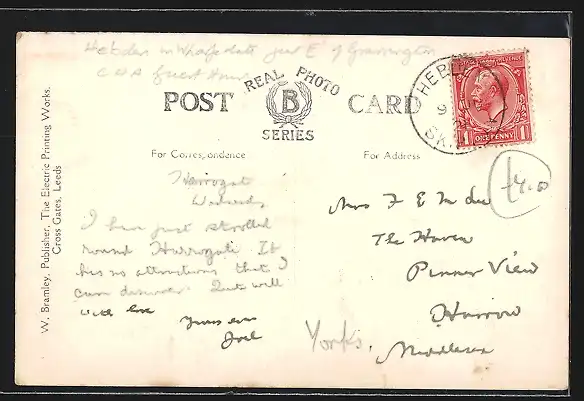 Hebden in Wharfedale just E of Grassington
CHA Guest House
REAL PHOTO
POST B CARD
SERIES
HEBDEN
SKIPTON
ONE PENNY
For Correspondence
For Address
W. Bramley, Publisher, The Electric Printing Works,
Cross Gates, Leeds
Harrogate
Wednesday
I have just strolled
round Harrogate It
has no attractions that I
can discover. Quite well
With love
Yours ever
Mrs F E
The Haven
Pinner View
Harrow
Middlesex
Yorks.